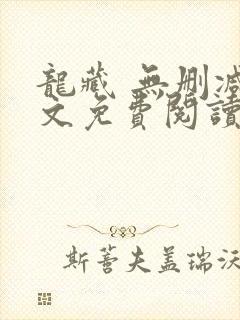 龍藏 無刪減
文免費閱讀
斯蒈夫盖瑞沃